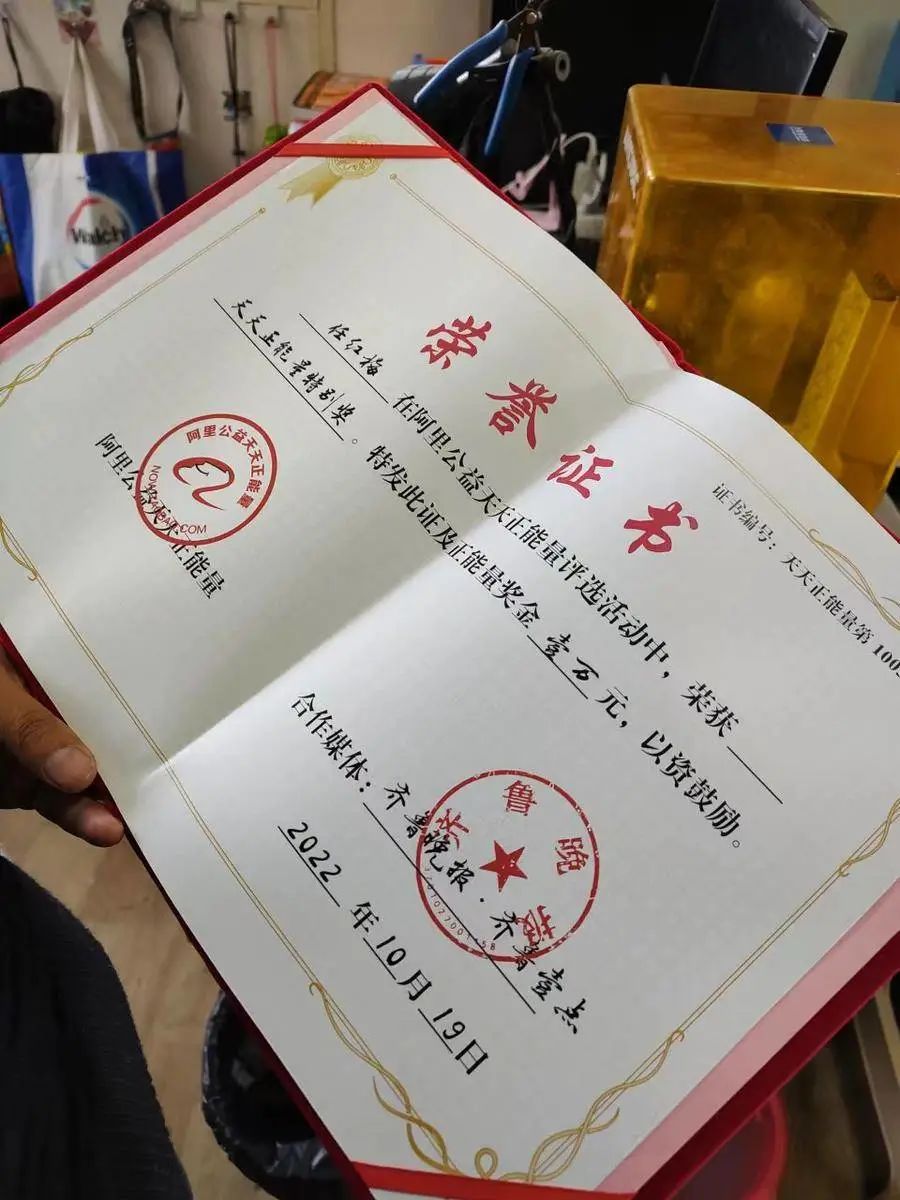 荣誉证书
证书编号：天天正能量第100
任红梅 在阿里公益天天正能量评选活动中，荣获
天天正能量特别奖。特发此证及正能量奖金壹万元，以资鼓励。
阿里公益天天正能量
阿里公益天天正能量
合作媒体：齐鲁晚报·齐鲁壹点
齐鲁晚报
2022年10月19日
Walch